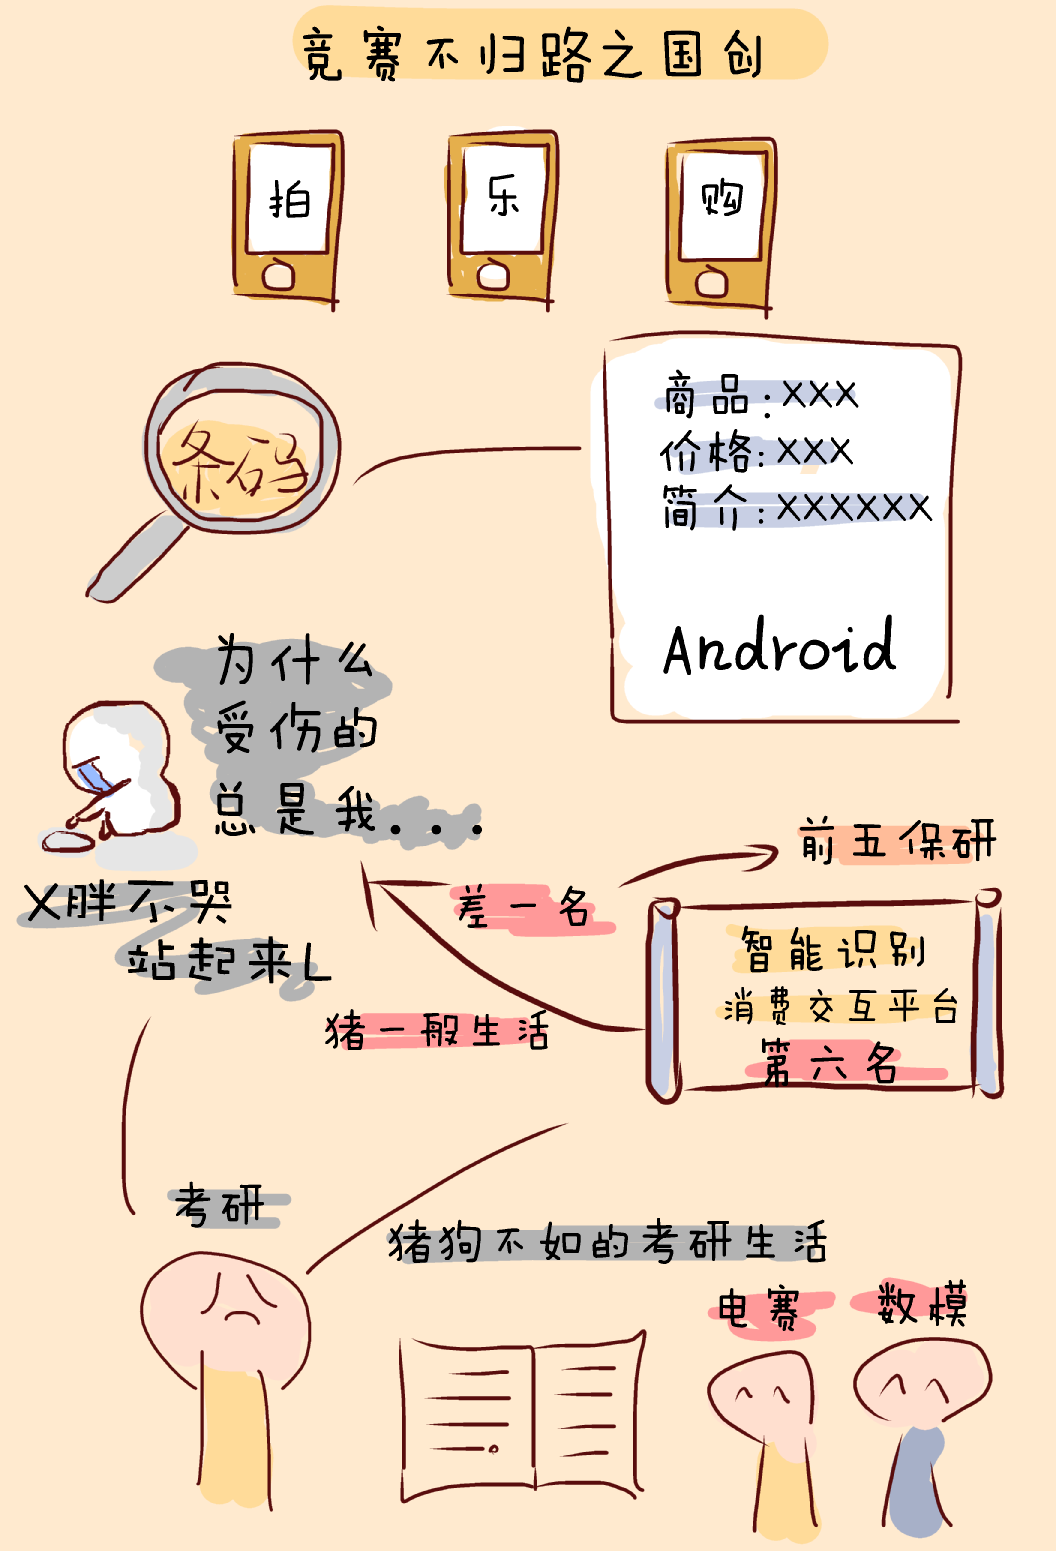 竞赛不归路之国创
拍 乐 购
条码
商品:XXX
价格:XXX
简介:XXXXXX
Android
为什么
受伤的
总是我...
X胖不哭
站起来L
差一名
前五保研
智能识别
消费交互平台
第六名
猪一般生活
考研
猪狗不如的考研生活
电赛
数模